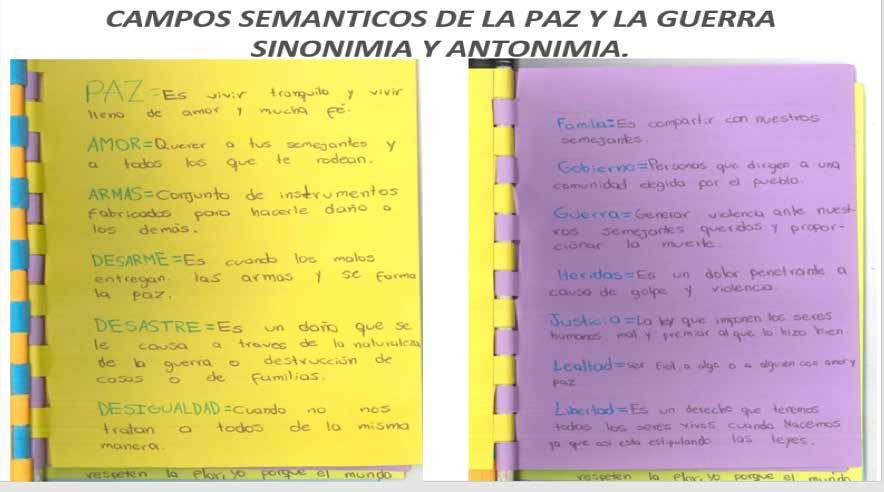 CAMPOS SEMANTICOS DE LA PAZ Y LA GUERRA
SINONIMIA Y ANTONIMIA.
PAZ=Es vivir tranquilo y vivir
lleno de amor y mucha fé.
AMOR=Querer a tus semejantes y
a todos los que te rodean.
ARMAS=Conjunto de instrumentos
fabricados para hacerle daño a
los demás.
DESARME=Es cuando los malos
entregan las armas y se forma
la paz.
DESASTRE=Es un daño que se
le causa a traves de la naturaleza
de la guerra o destrucción de
casas o de familias.
DESIGUALDAD=Cuando no nos
tratan a todos de la misma
manera.
respeten la flor, yo porque el mundo
Familia=Es compartir con nuestros
semejantes.
Gobierno=Personas que dirigen a una
comunidad elegida por el pueblo.
Guerra=Generar violencia ante nuest-
ros semejantes queridos y propor-
cionar la muerte.
Heridas=Es un dolor penetrante a
causa de golpe y violencia.
Justicia=La ley que imponen los seres
humanos mal y premiar al que lo hizo bien.
Lealtad=ser fiel a algo o a alguien con amor y
paz
Libertad=Es un derecho que tenemos
todos los seres vivos cuando Nacemos
ya que asi esta estipulando las leyes.
respeten la flor, yo porque el mundo